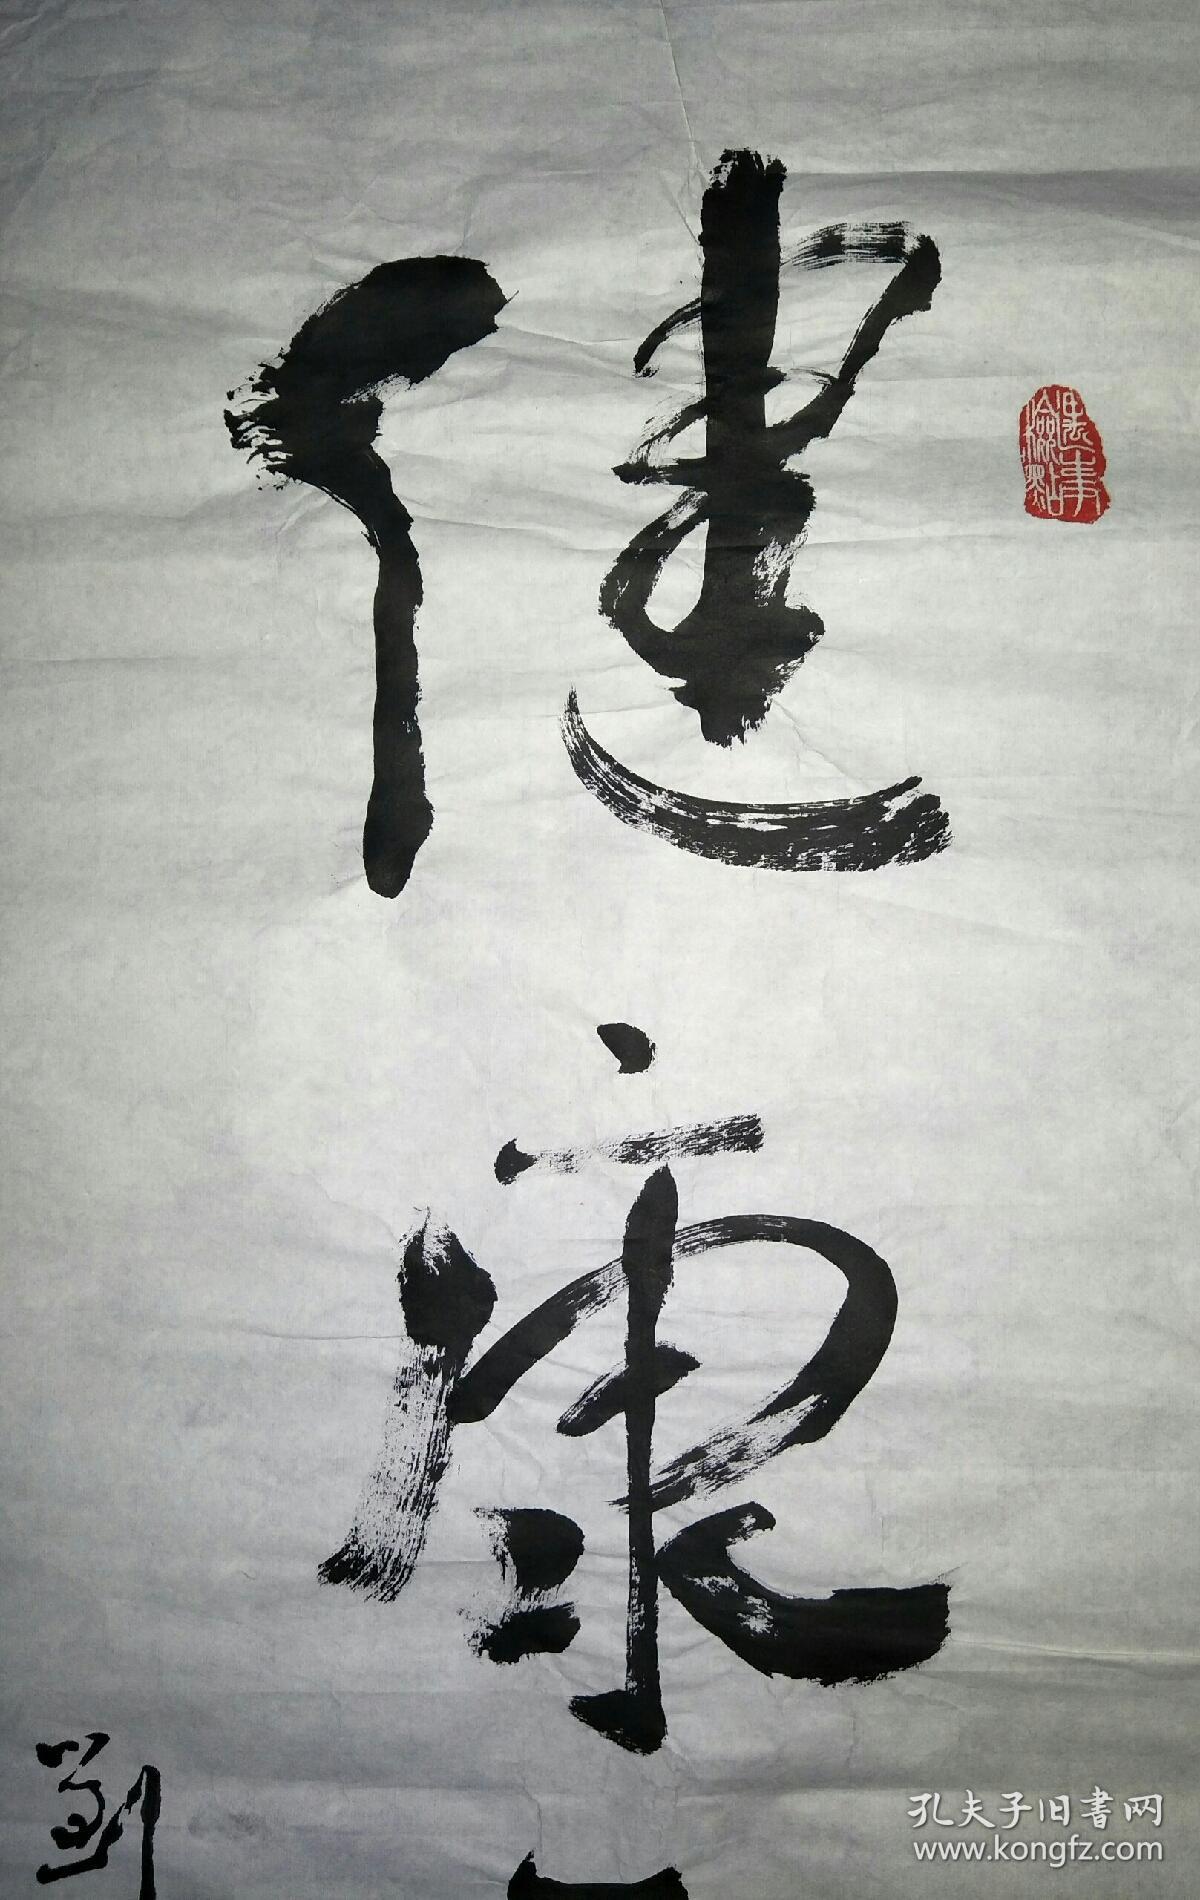 健康
劉
孔夫子旧書网
www.kongfz.com